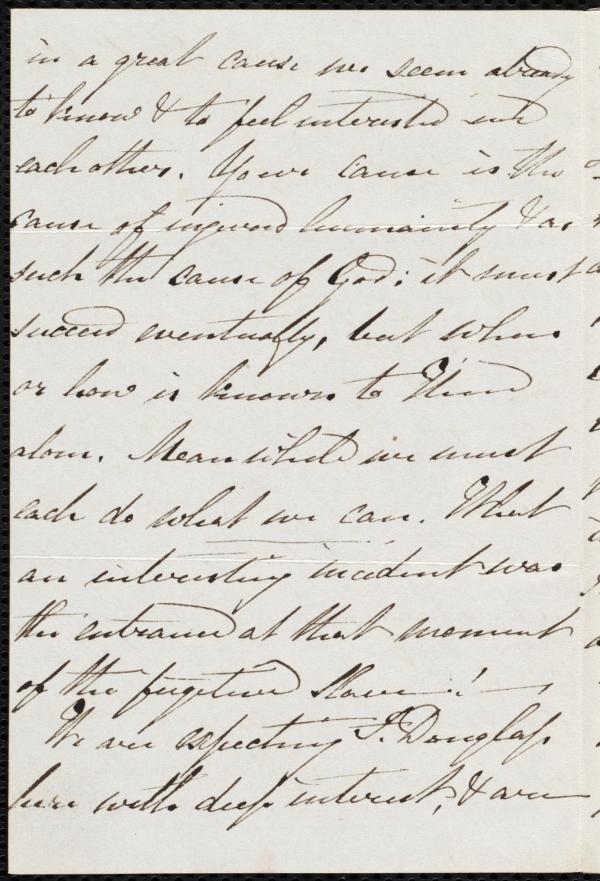 in a great cause we seem already
to know & to feel interested in
each other. Your cause is the
cause of injured humanity & as
such the cause of God; it must
succeed eventually, but when
or how is known to Him
alone. Meanwhile we must
each do what we can. What
an interesting incident was
the entrance at that moment
of the fugitive Slave! —
We are expecting F. Douglass
here with deep interest, & are